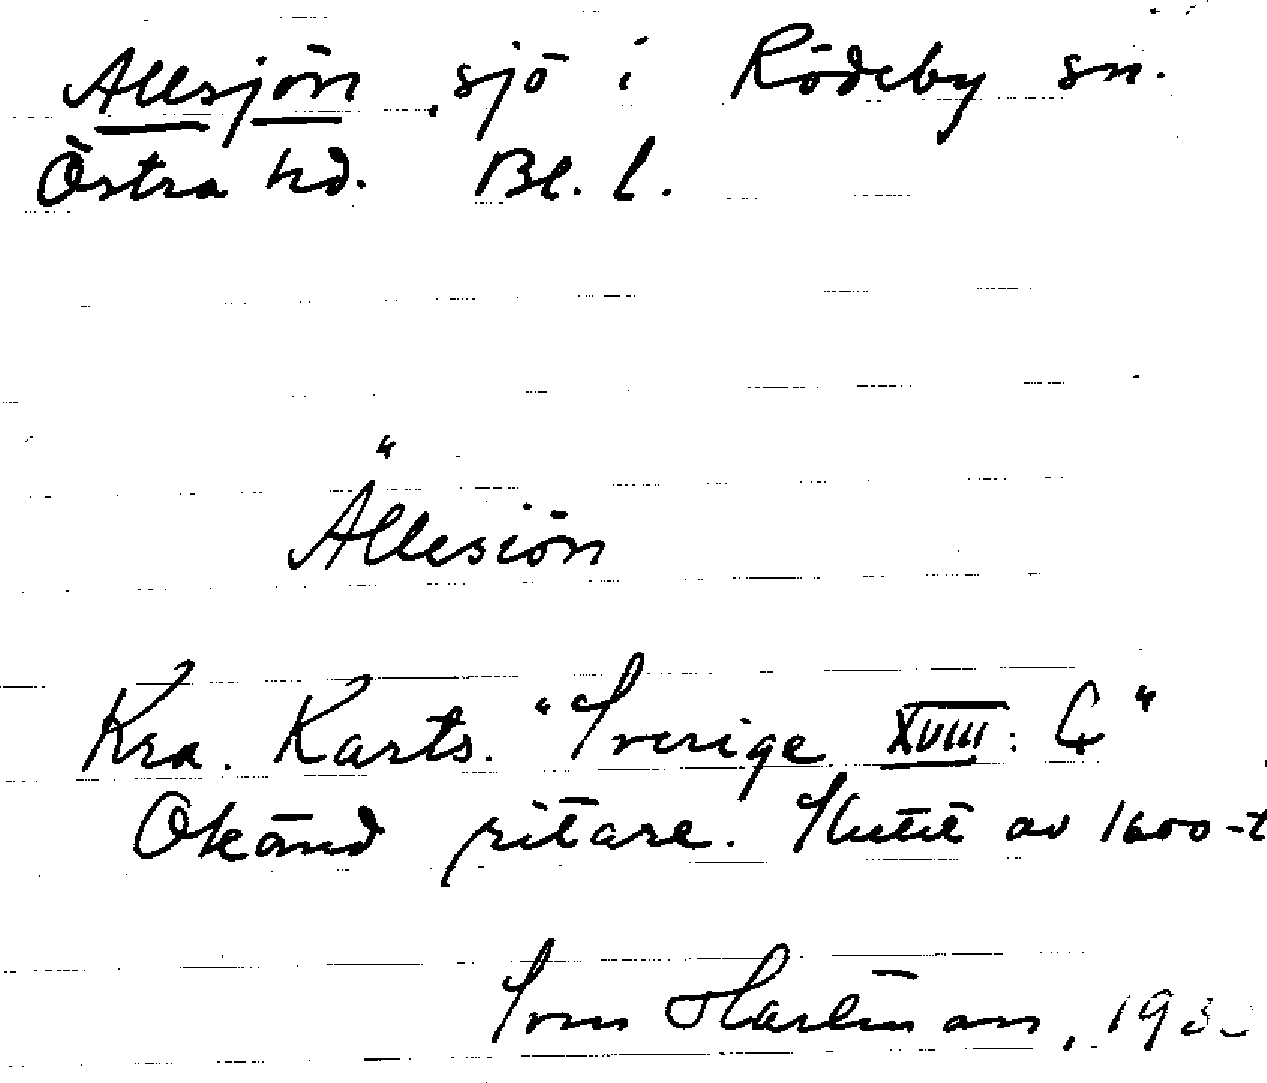 Allsjön, sjö i Rödeby sn.
Östra hd. Bl. l.
Ällesiön
Kra. Karts. "Sverige XVIII: C"
Okänd ritare. Slutet av 1600-t
Sven Hartman, 193